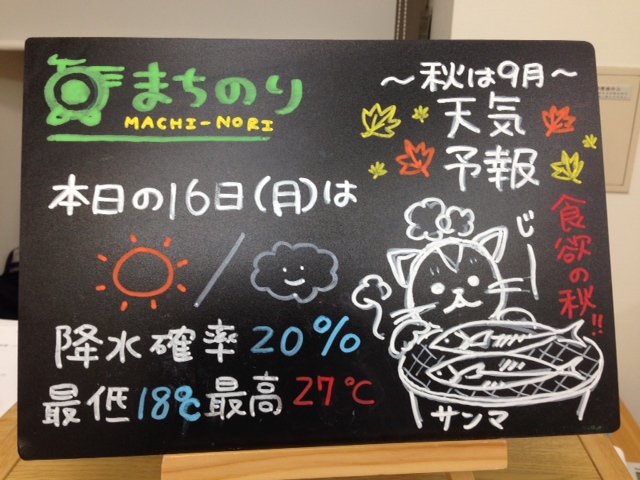 まちのり
MACHI-NORI
本日の16日(月)は
降水確率20%
最低18℃最高27℃
～秋は9月～
天気
予報
食欲の秋!!
じー
サンマ